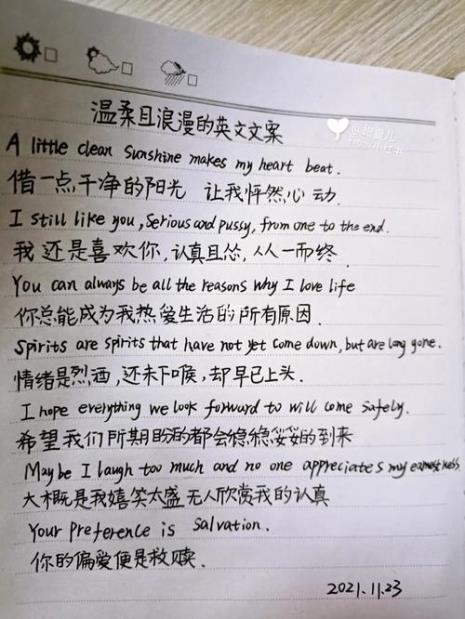 温柔且浪漫的英文文案
A little clean sunshine makes my heart beat.
借一点干净的阳光 让我怦然心动.
I still like you, Serious and pussy, from one to the end.
我还是喜欢你,认真且怂,从一而终.
You can always be all the reasons why I love life
你总能成为我热爱生活的所有原因.
Spirits are spirits that have not yet come down, but are long gone.
情绪是烈酒,还未下喉,却早已上头.
I hope everything we look forward to will come safely.
希望我们所期盼的都会稳稳妥妥的到来
Maybe I laugh too much and no one appreciates my earnestness
大概是我嬉笑太盛 无人欣赏我的认真
Your preference is salvation.
你的偏爱便是救赎.
2021.11.23